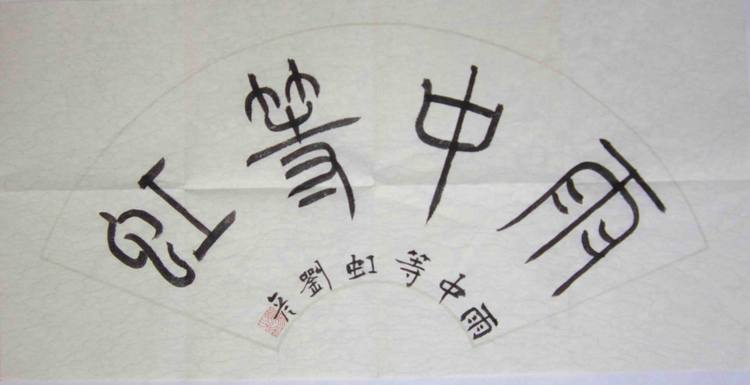 雨中等虹
雨中等虹劉炎